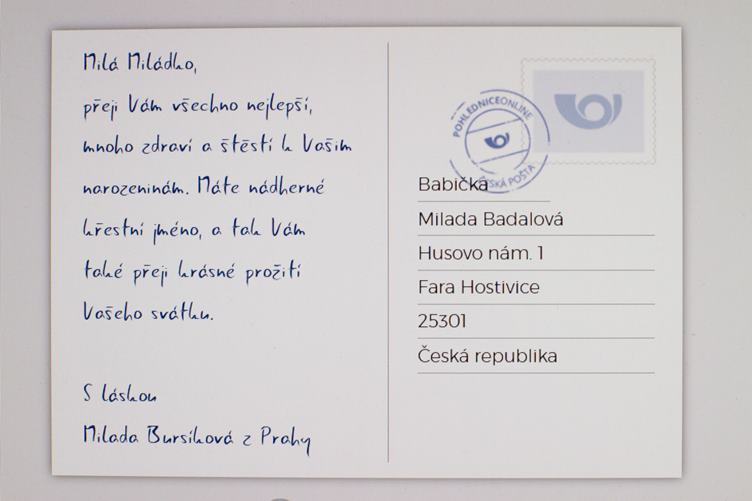 Milá Miládko,
přeji Vám všechno nejlepší,
mnoho zdraví a štěstí k Vašim
narozeninám. Máte nádherné
křestní jméno, a tak Vám
také přeji krásné prožití
Vašeho svátku.
S láskou
Milada Bursíková z Prahy
POHLEDNICEONLINE
ČESKÁ POŠTA
Babička
Milada Badalová
Husovo nám. 1
Fara Hostivice
25301
Česká republika